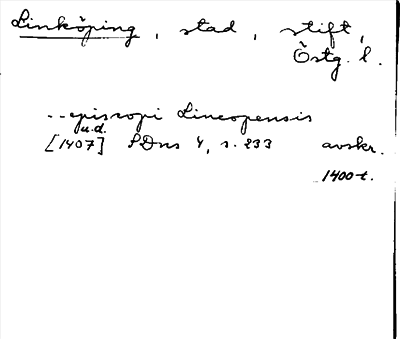 Linköping, stad, stift,
Östg. l.
-- episcopi Lincopensis
u.d.
[1407] SDns 4, s. 233 avskr.
1400-t.